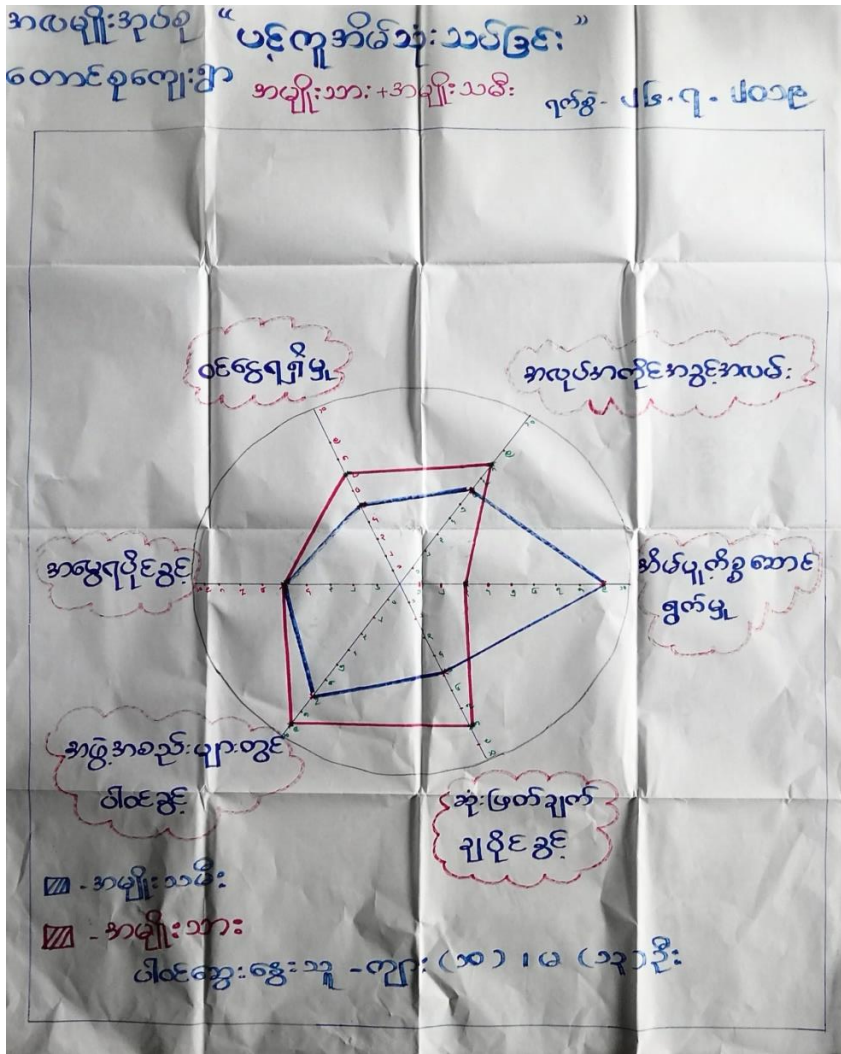 အလမျိုးအုပ်စု
တောင်စုကျေးရွာ
“ပင့်ကူအိမ်သုံးသပ်ခြင်း”
အမျိုးသား+အမျိုးသမီး
ရက်စွဲ- ၂၆.၇.၂၀၁၉
ဝင်ငွေရရှိမှု
အလုပ်အကိုင်အခွင့်အလမ်း
အမွေရပိုင်ခွင့်
အိမ်မှုကိစ္စဆောင်
ရွက်မှု
အဖွဲ့အစည်းများတွင်
ပါဝင်ခွင့်
ဆုံးဖြတ်ချက်
ချပိုင်ခွင့်
- အမျိုးသမီး
- အမျိုးသား
ပါဝင်ဆွေးနွေးသူ - ကျား (၁၀) ၊ မ (၁၃) ဦး